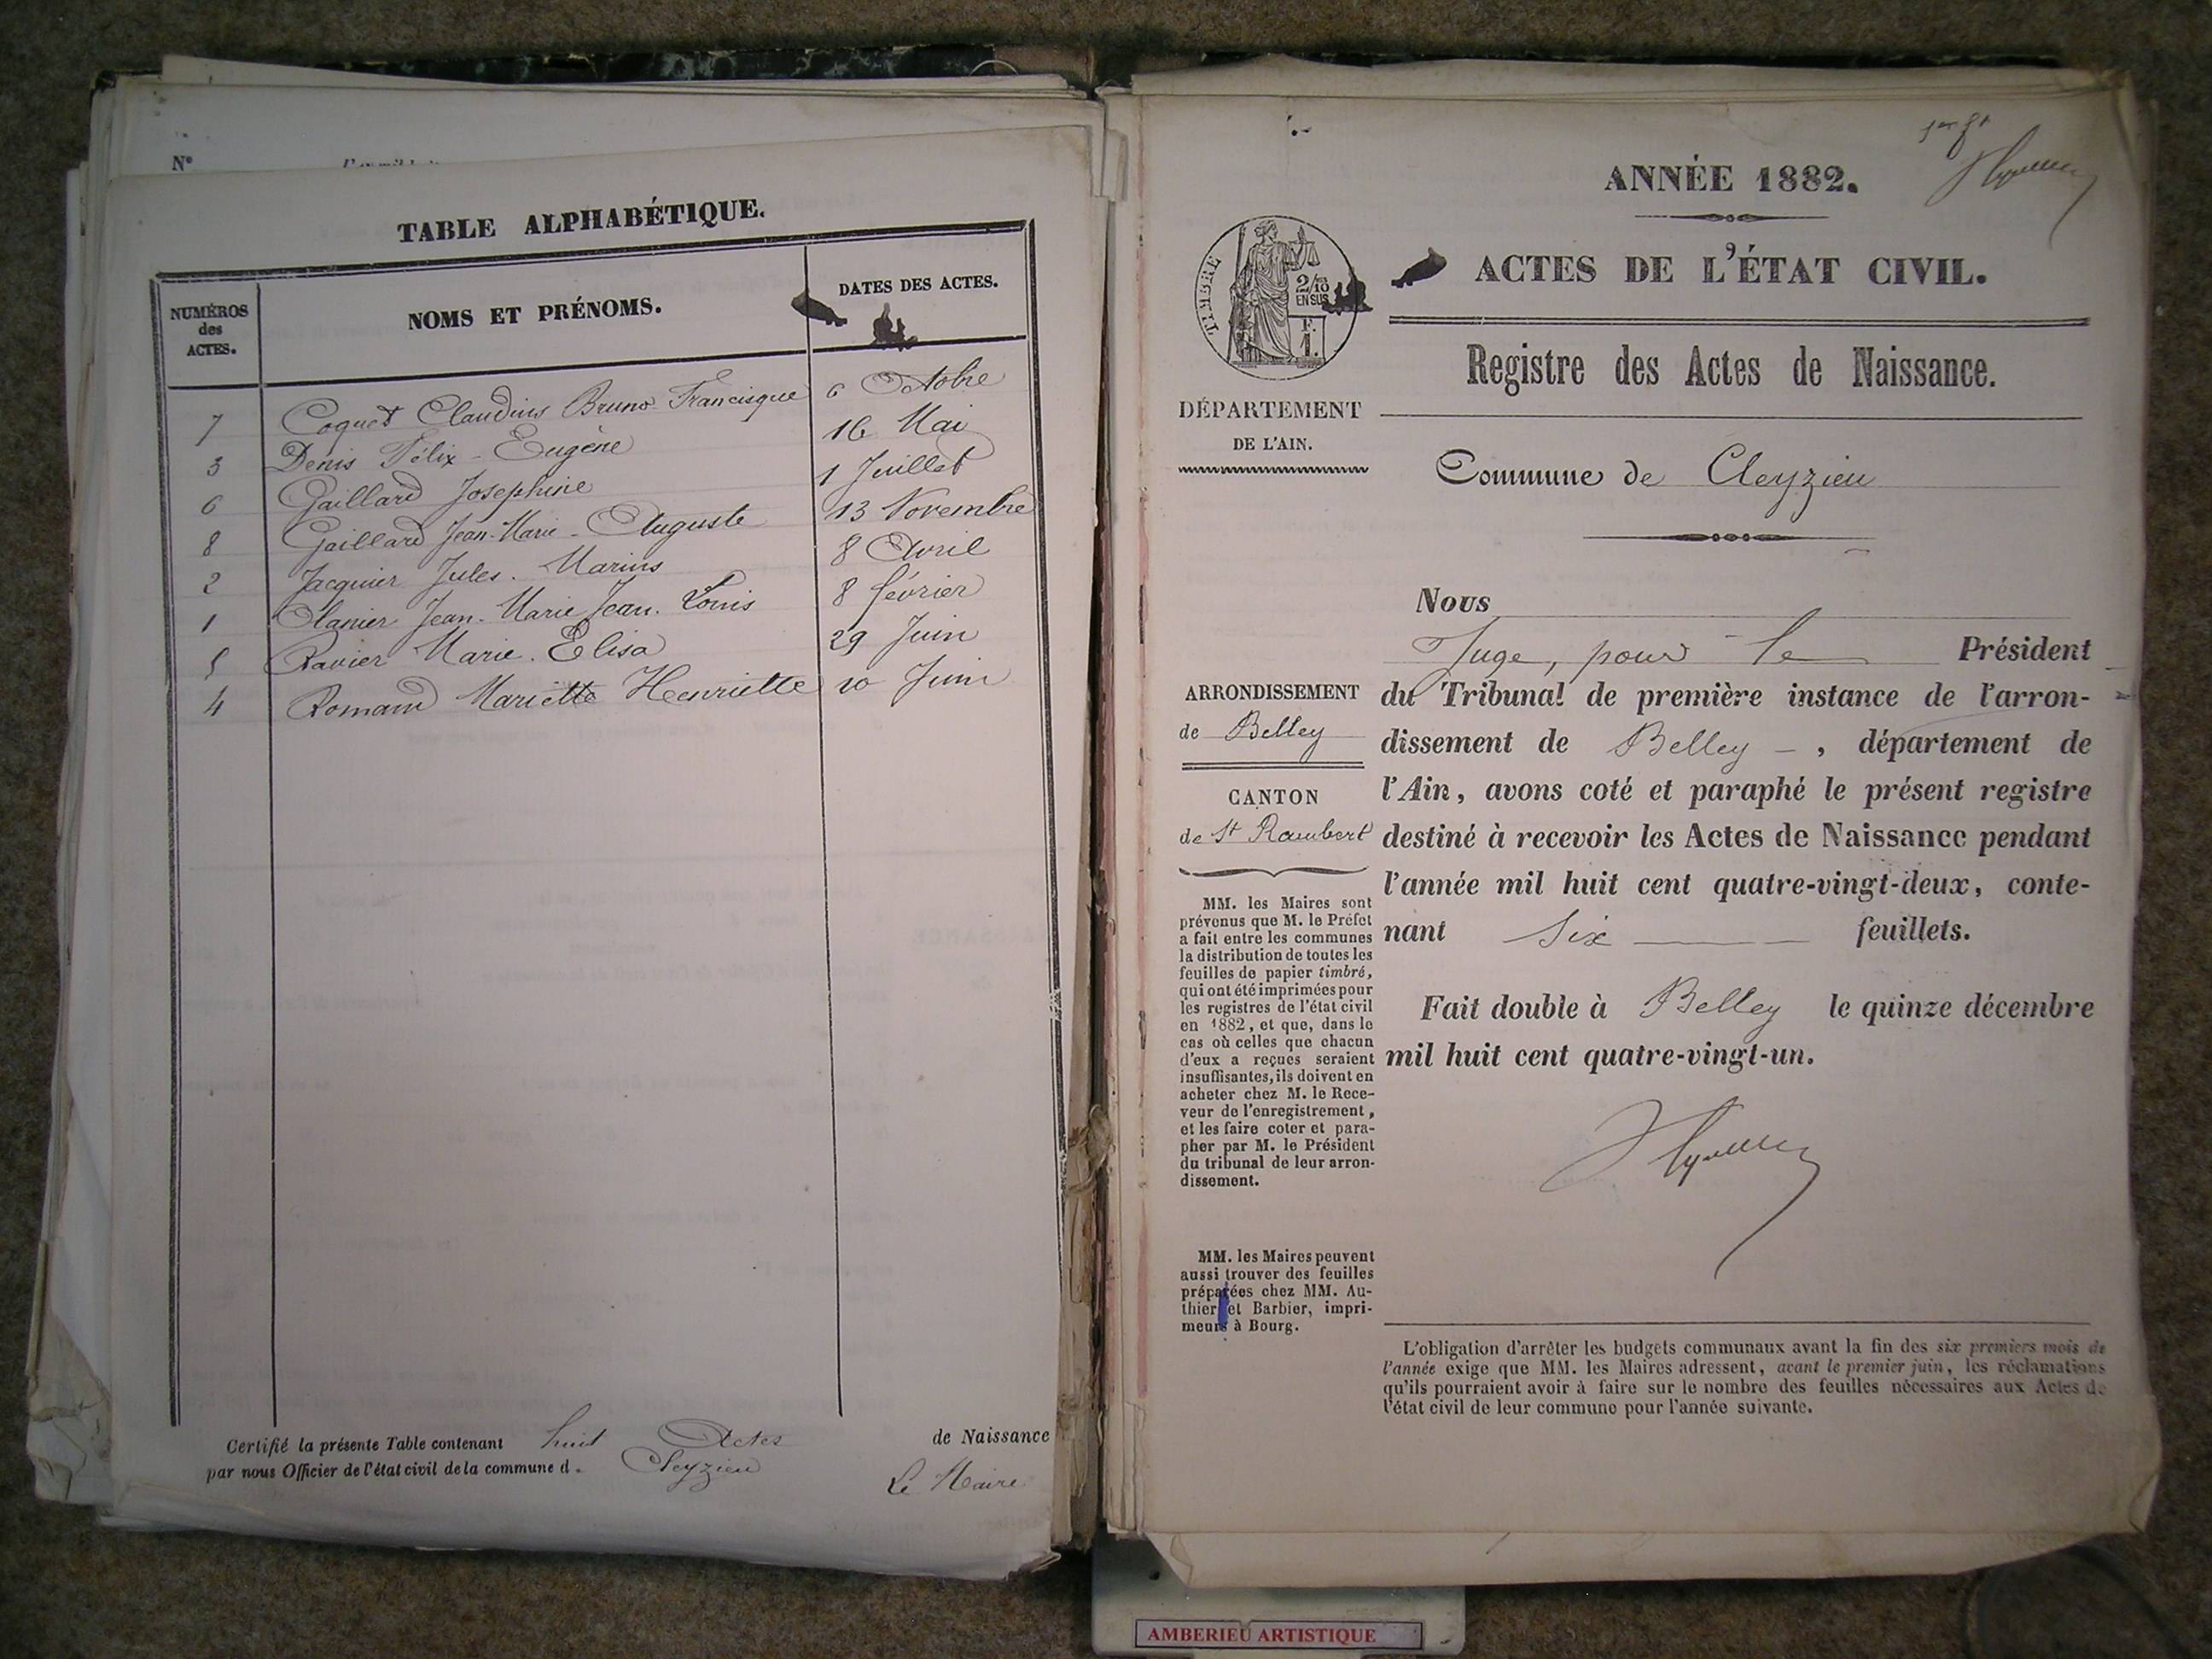 N°
TABLE ALPHABÉTIQUE.
NUMÉROS des ACTES.
NOMS ET PRÉNOMS.
DATES DES ACTES.
7 Coquet Claudius Bruno Francisque 6 Octobre
3 Denis Félix-Eugène 16 Mai
6 Gaillard Josephine 1 Juillet
8 Gaillard Jean-Marie-Auguste 13 Novembre
2 Jacquier Jules. Marius 8 Avril
1 Olanier Jean-Marie Jean. Louis 8 février
5 Ravier Marie. Elisa 29 Juin
4 Romand Mariette Henriette 10 Juin
Certifié la présente Table contenant huit Actes de Naissance
par nous Officier de l'état civil de la commune d. Cleyzieu
Le Maire
1er ft
ANNÉE 1882.
ACTES DE L'ÉTAT CIVIL.
TIMBRE
2/10
EN SUS
F.
1.
Registre des Actes de Naissance.
DÉPARTEMENT
DE L'AIN.
Commune de Cleyzieu
Nous
Juge, pour le Président
du Tribunal de première instance de l'arron-
dissement de Belley - , département de
l'Ain, avons coté et paraphé le présent registre
destiné à recevoir les Actes de Naissance pendant
l'année mil huit cent quatre-vingt-deux, conte-
nant six feuillets.
Fait double à Belley le quinze décembre
mil huit cent quatre-vingt-un.
ARRONDISSEMENT
de Belley
CANTON
de St Rambert
MM. les Maires sont
prévenus que M. le Préfet
a fait entre les communes
la distribution de toutes les
feuilles de papier timbré,
qui ont été imprimées pour
les registres de l'état civil
en 1882, et que, dans le
cas où celles que chacun
d'eux a reçues seraient
insuffisantes, ils doivent en
acheter chez M. le Rece-
veur de l'enregistrement,
et les faire coter et para-
pher par M. le Président
du tribunal de leur arron-
dissement.
MM. les Maires peuvent
aussi trouver des feuilles
préparées chez MM. Au-
thier et Barbier, impri-
meurs à Bourg.
L'obligation d'arrêter les budgets communaux avant la fin des six premiers mois de
l'année exige que MM. les Maires adressent, avant le premier juin, les réclamations
qu'ils pourraient avoir à faire sur le nombre des feuilles nécessaires aux Actes de
l'état civil de leur commune pour l'année suivante.
AMBERIEU ARTISTIQUE